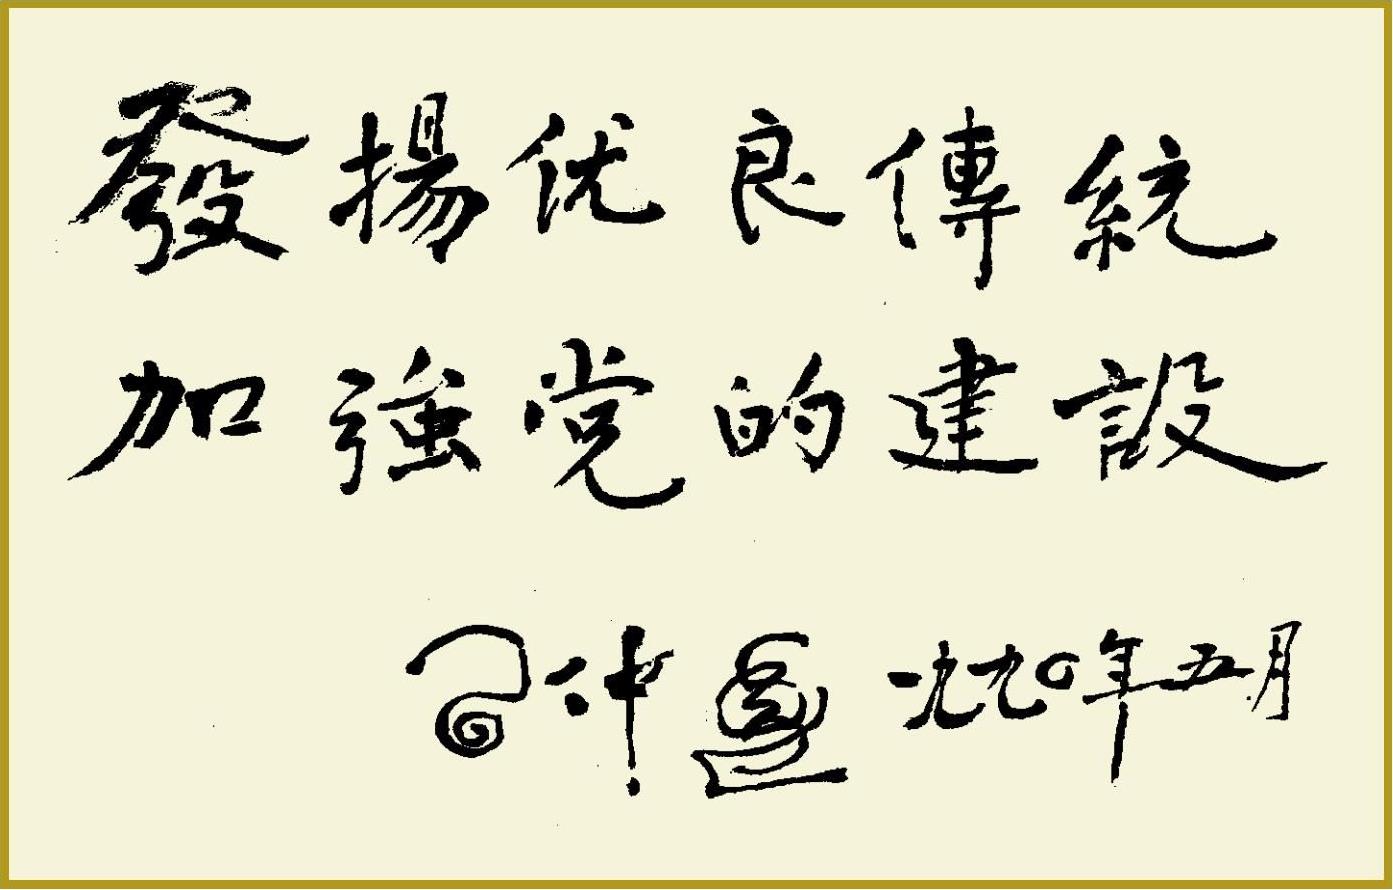 發揚优良傳統
加強党的建設
一九九〇年五月